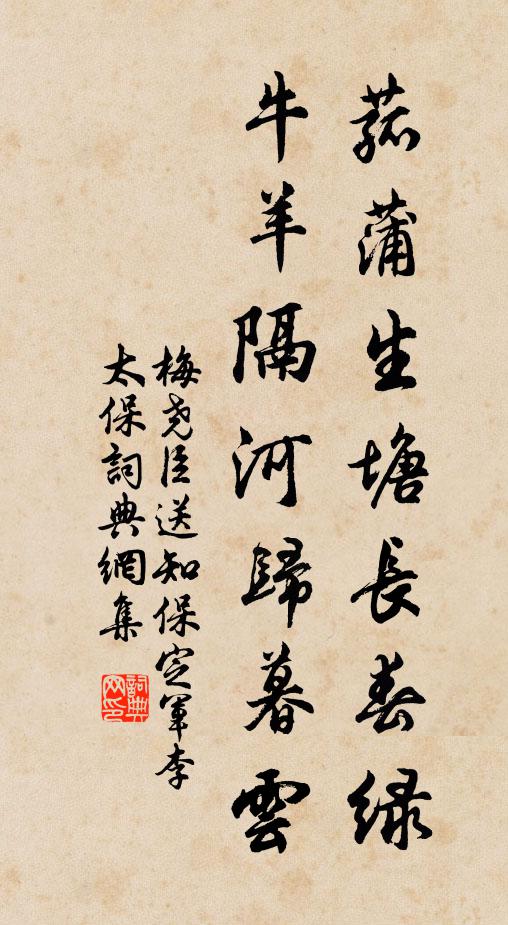 菰蒲生塘長春綠
牛羊隔河歸暮雲
梅堯臣送知保定軍李
太保詞典網集
詞典網印